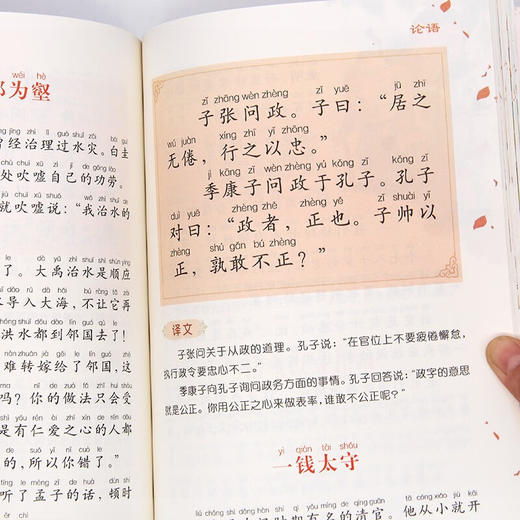 wèi hè
为壑
曾经治理过水灾。白圭
处吹嘘自己的功劳。
就吹嘘说：“我治水的
了。大禹治水是顺应
水导入大海，不让它再
洪水都到邻国去了！
难转嫁给了邻国，这
吗？你的做法只会受
是有仁爱之心的人都
的，所以你错了。”
听了孟子的话，顿时
论语
zǐ zhāng wèn zhèng zǐ yuē jū zhī
子张问政。子曰：“居之
wú juàn xíng zhī yǐ zhōng
无倦，行之以忠。”
jì kāng zǐ wèn zhèng yú kǒng zǐ kǒng zǐ
季康子问政于孔子。孔子
duì yuē zhèng zhě zhèng yě zǐ shuài yǐ
对曰：“政者，正也。子帅以
zhèng shú gǎn bú zhèng
正，孰敢不正？”
译文
子张问关于从政的道理。孔子说：“在官位上不要疲倦懈怠，
执行政令要忠心不二。”
季康子向孔子询问政务方面的事情。孔子回答说：“政字的意思
就是公正。你用公正之心来做表率，谁敢不公正呢？”
yì qián tài shǒu
一钱太守
有名的清官。他从小就开